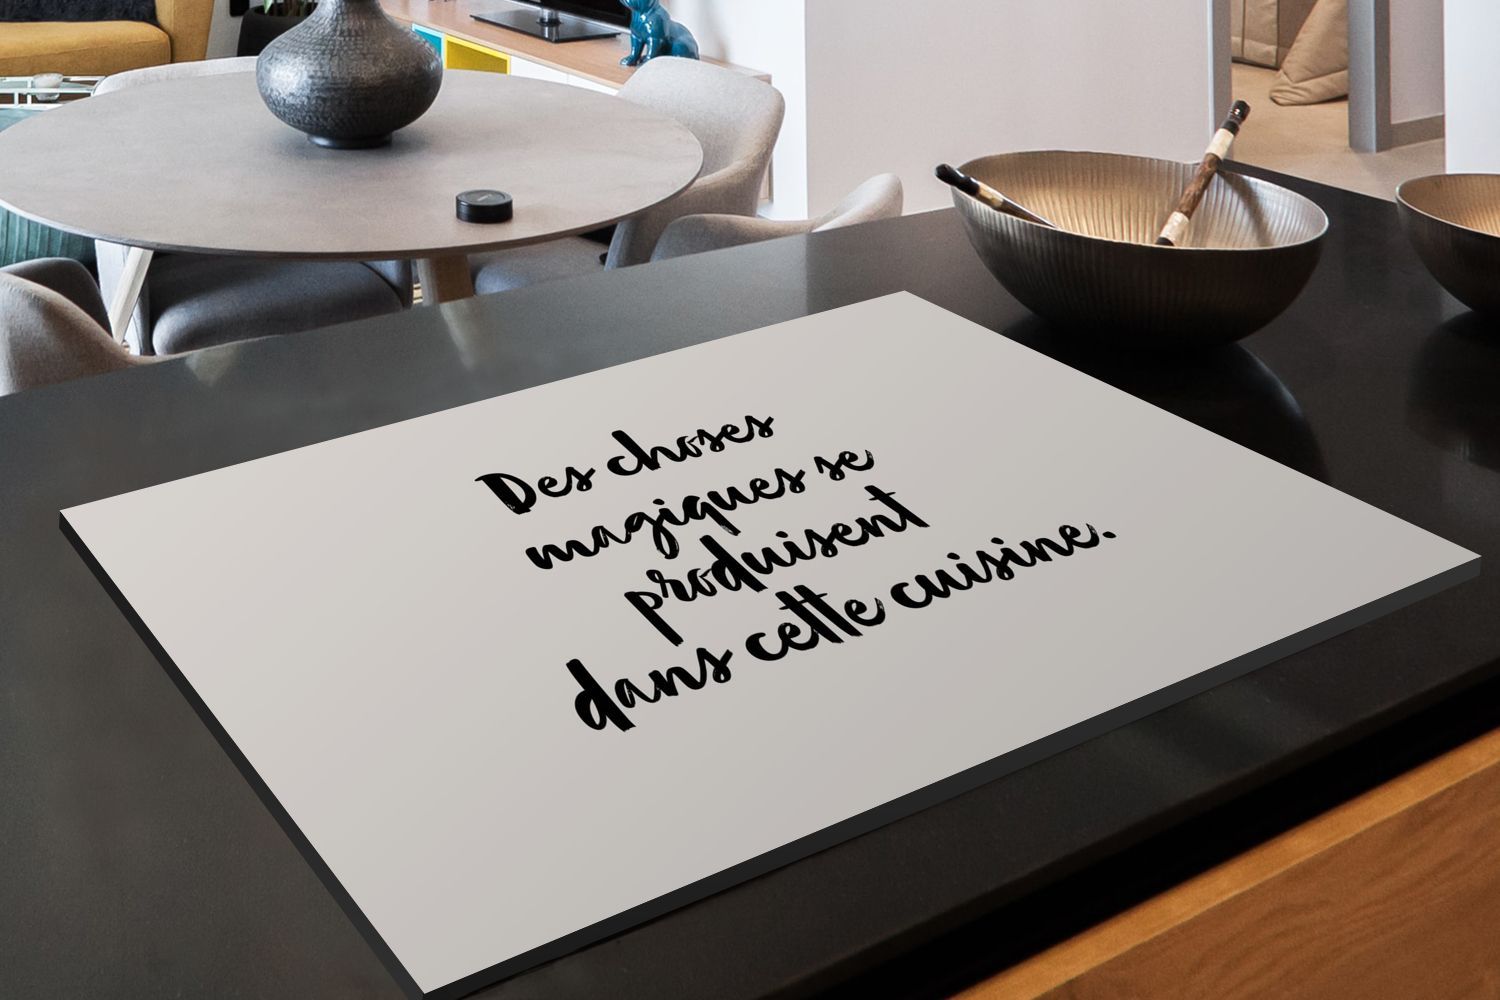 Des choses
magiques se
produisent
dans cette cuisine.